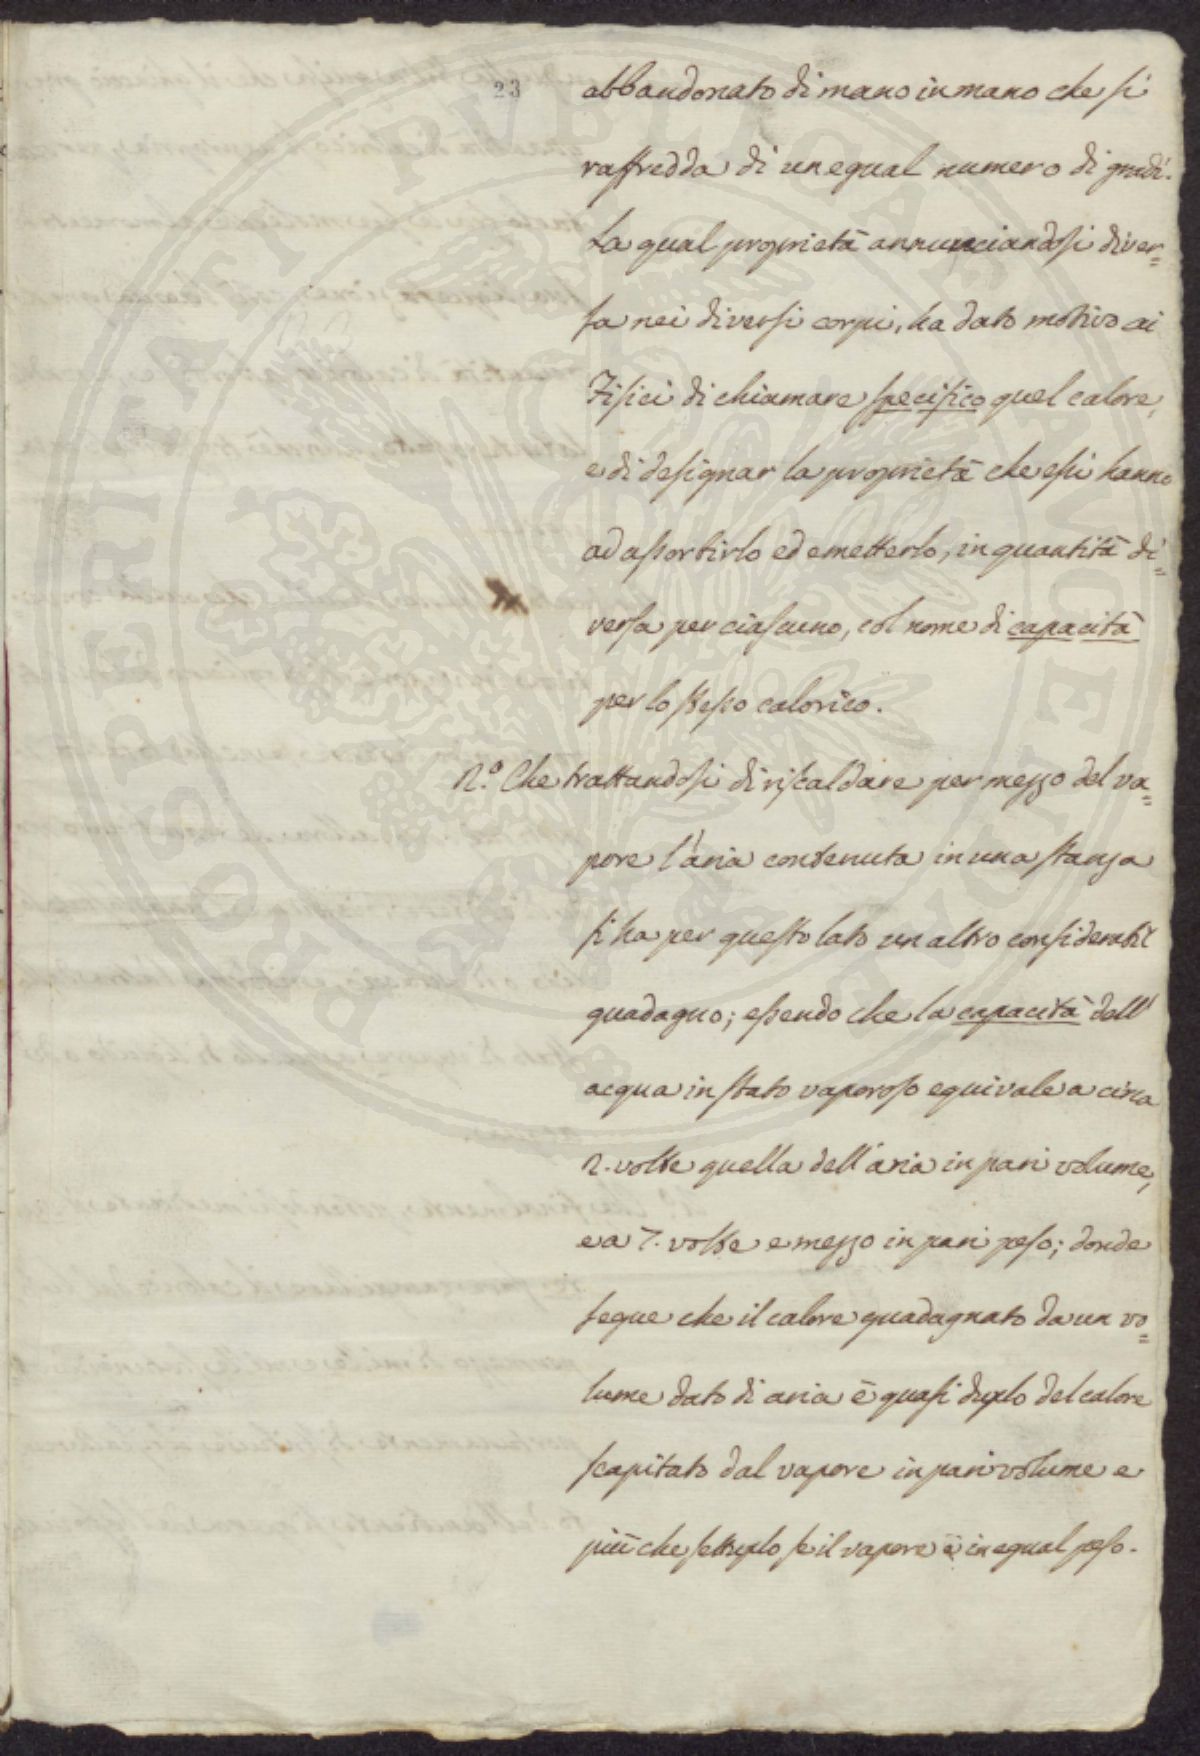 23
abbandonato di mano in mano che si
raffredda di un egual numero di gradi.
La qual proprietà annunciandosi diver=
sa nei diversi corpi, ha dato motivo ai
Fisici di chiamare specifico quel calore,
e di designar la proprietà che essi hanno
ad assorbirlo ed emetterlo, in quantità di=
versa per ciascuno, col nome di capacità
per lo stesso calorico.
2.° Che trattandosi di riscaldare per mezzo del va=
pore l'aria contenuta in una stanza
si ha per questo lato un altro considerabil
guadagno; essendo che la capacità dell'
acqua in stato vaporoso equivale a circa
2. volte quella dell'aria in pari volume,
e a 7. volte e mezzo in pari peso; donde
segue che il calore guadagnato da un vo=
lume dato di aria è quasi duplo del calore
scapitato dal vapore in pari volume e
più che settuplo se il vapore è in egual peso.
PROSPERITATI PVBLICAE AVGENDAE